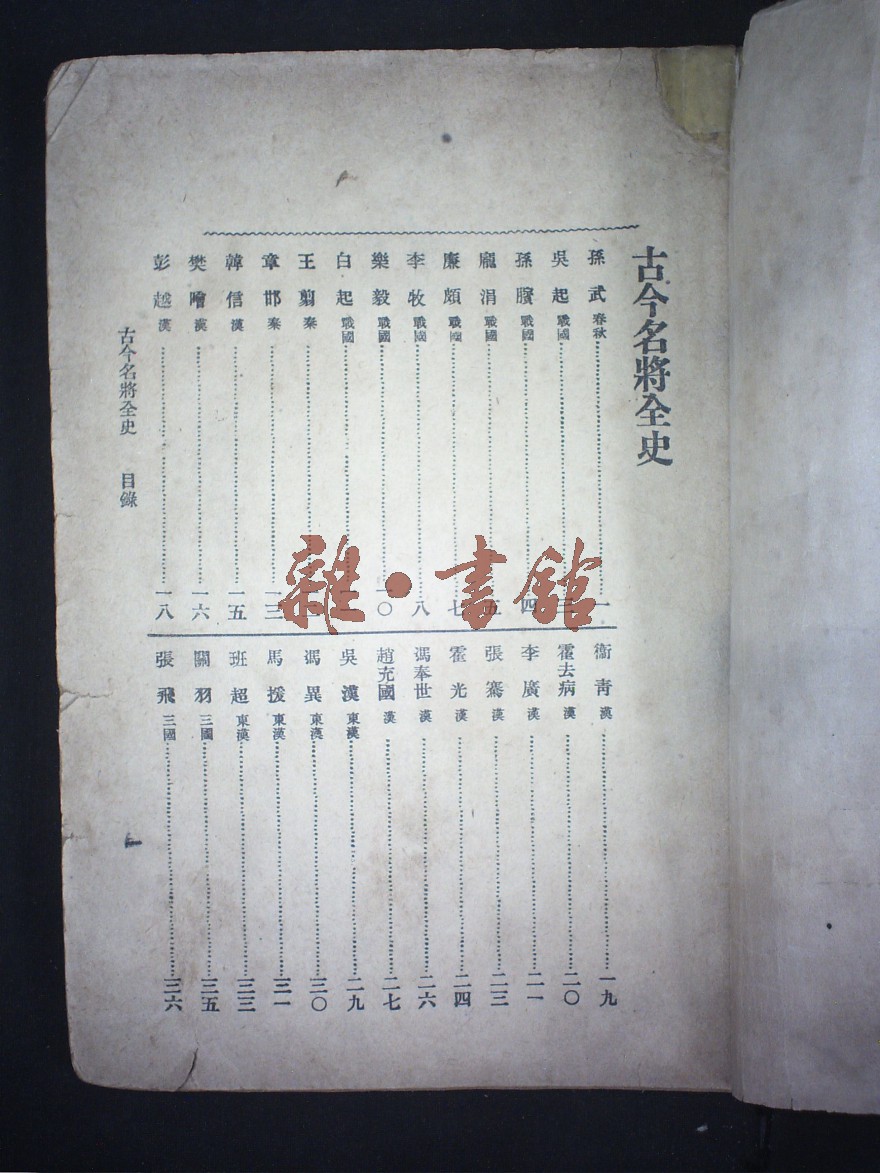 古今名將全史
孫武 春秋 一
吳起 戰國 三
孫臏 戰國 四
龐涓 戰國 五
廉頗 戰國 七
李牧 戰國 八
樂毅 戰國 一〇
白起 戰國
王翦 秦
章邯 秦 一三
韓信 漢 一五
樊噲 漢 一六
彭越 漢 一八
衞青 漢 一九
霍去病 漢 二〇
李廣 漢 二一
張騫 漢 二三
霍光 漢 二四
馮奉世 漢 二六
趙充國 漢 二七
吳漢 東漢 二九
馮異 東漢 三〇
馬援 東漢 三一
班超 東漢 三三
關羽 三國 三五
張飛 三國 三六
古今名將全史 目錄
一
雜·書館